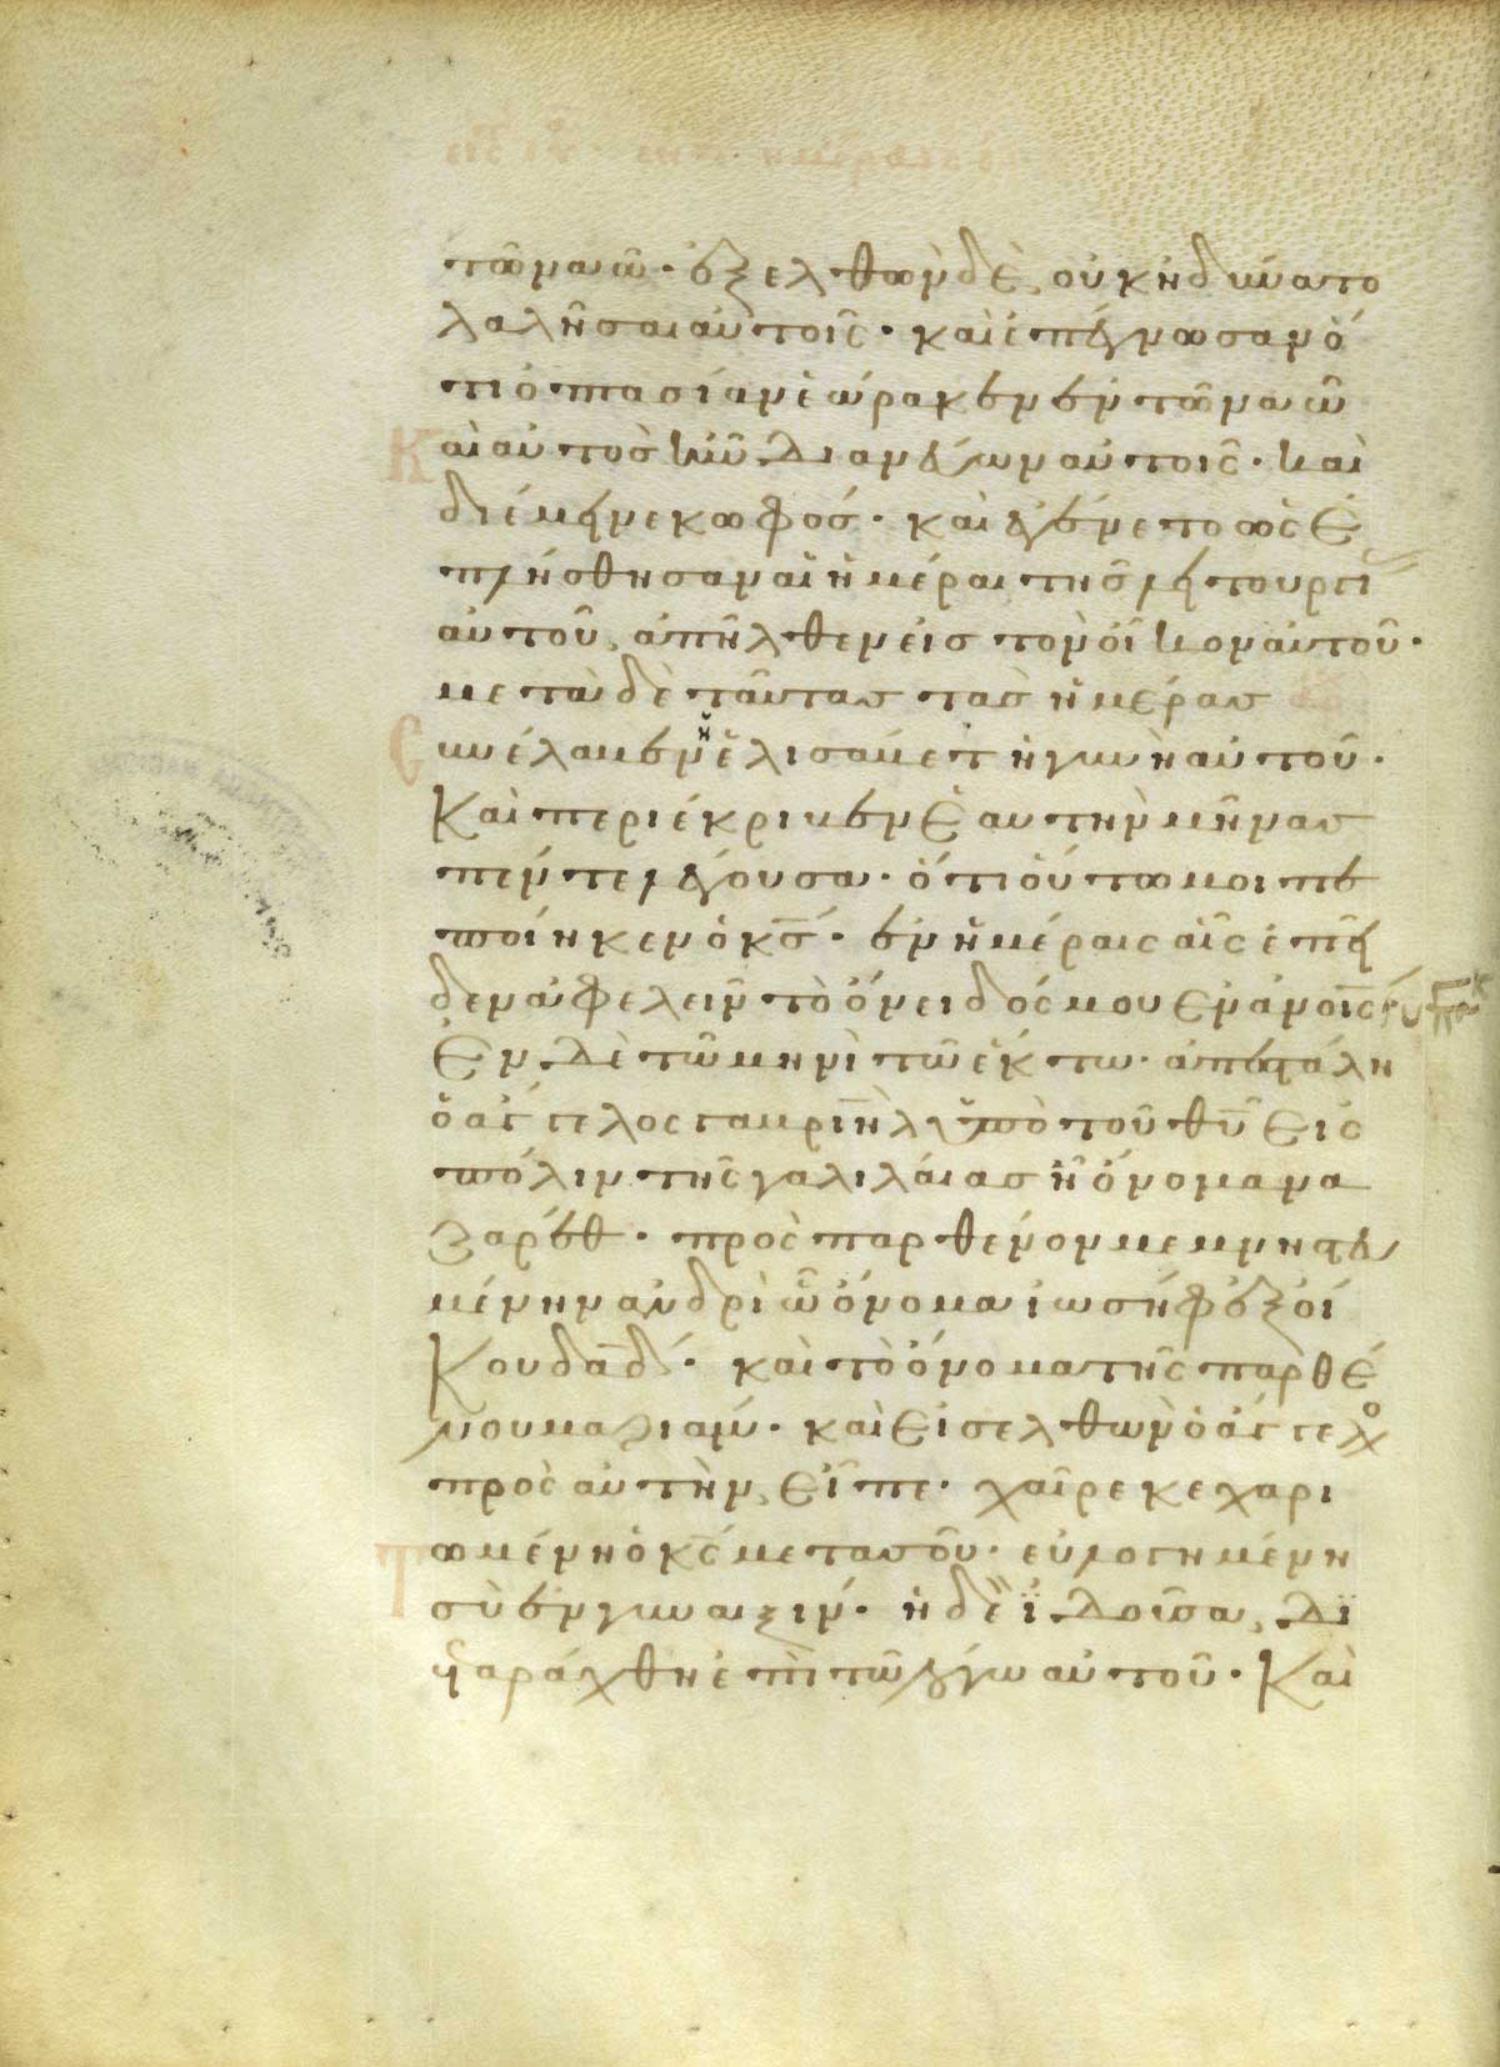 τῶ ναῶ· ἐξελθὼν δὲ, οὐκ ἠδύνατο
λαλῆσαι αὐτοῖς· καὶ ἐπέγνωσαν ὅ
τι ὀπτασίαν ἑώρακεν ἐν τῶ ναῶ
Καὶ αὐτὸσ ἦν διανεύων αὐτοῖς· καὶ
διέμεινε κωφόσ· καὶ ἐγένετο ὡς ἐ
πλήσθησαν αἱ ἡμέραι τῆσ λειτουργι
αὐτοῦ, ἀπῆλθεν εἰσ τὸν οἶκον αὐτοῦ·
μετὰ δὲ ταύτασ τὰσ ἡμέρασ
Συνέλαβεν ἡ ἐλισάβετ ἡ γυνὴ αὐτοῦ·
Καὶ περιέκρυβεν ἑαυτὴν μῆνασ
πέντε λέγουσα· ὅτι οὕτω μοι πε
ποίηκεν ὁ κσ· ἐν ἡμέραις αἷς ἐπεῖ
δεν ἀφελεῖν τὸ ὄνειδός μου ἐν ἀνοις·
Ἐν δὲ τῶ μηνὶ τῶ ἕκτω· ἀπεστάλη
ὁ ἄγγελος γαβριὴλ ὑπὸ τοῦ θυ εἰς
πόλιν τῆς γαλιλαίασ ἧ ὄνομα να
ζαρέθ· πρὸς παρθένον μεμνηστευ
μένην ἀνδρὶ ὧ ὄνομα ἰωσὴφ ἐξ οἴ
Κου δαδ· καὶ τὸ ὄνομα τῆς παρθέ
νου μαριάμ· καὶ εἰσελθὼν ὁ ἄγγελο
πρὸς αὐτὴν, εἶπε· χαῖρε κεχαρι
τωμένη ὁ κς μετὰ σοῦ· εὐλογημένη
σὺ ἐν γυναιξίν· ἡ δὲ ἰδοῦσα, δι
εταράχθη ἐπὶ τῶ λόγω αὐτοῦ· Καὶ